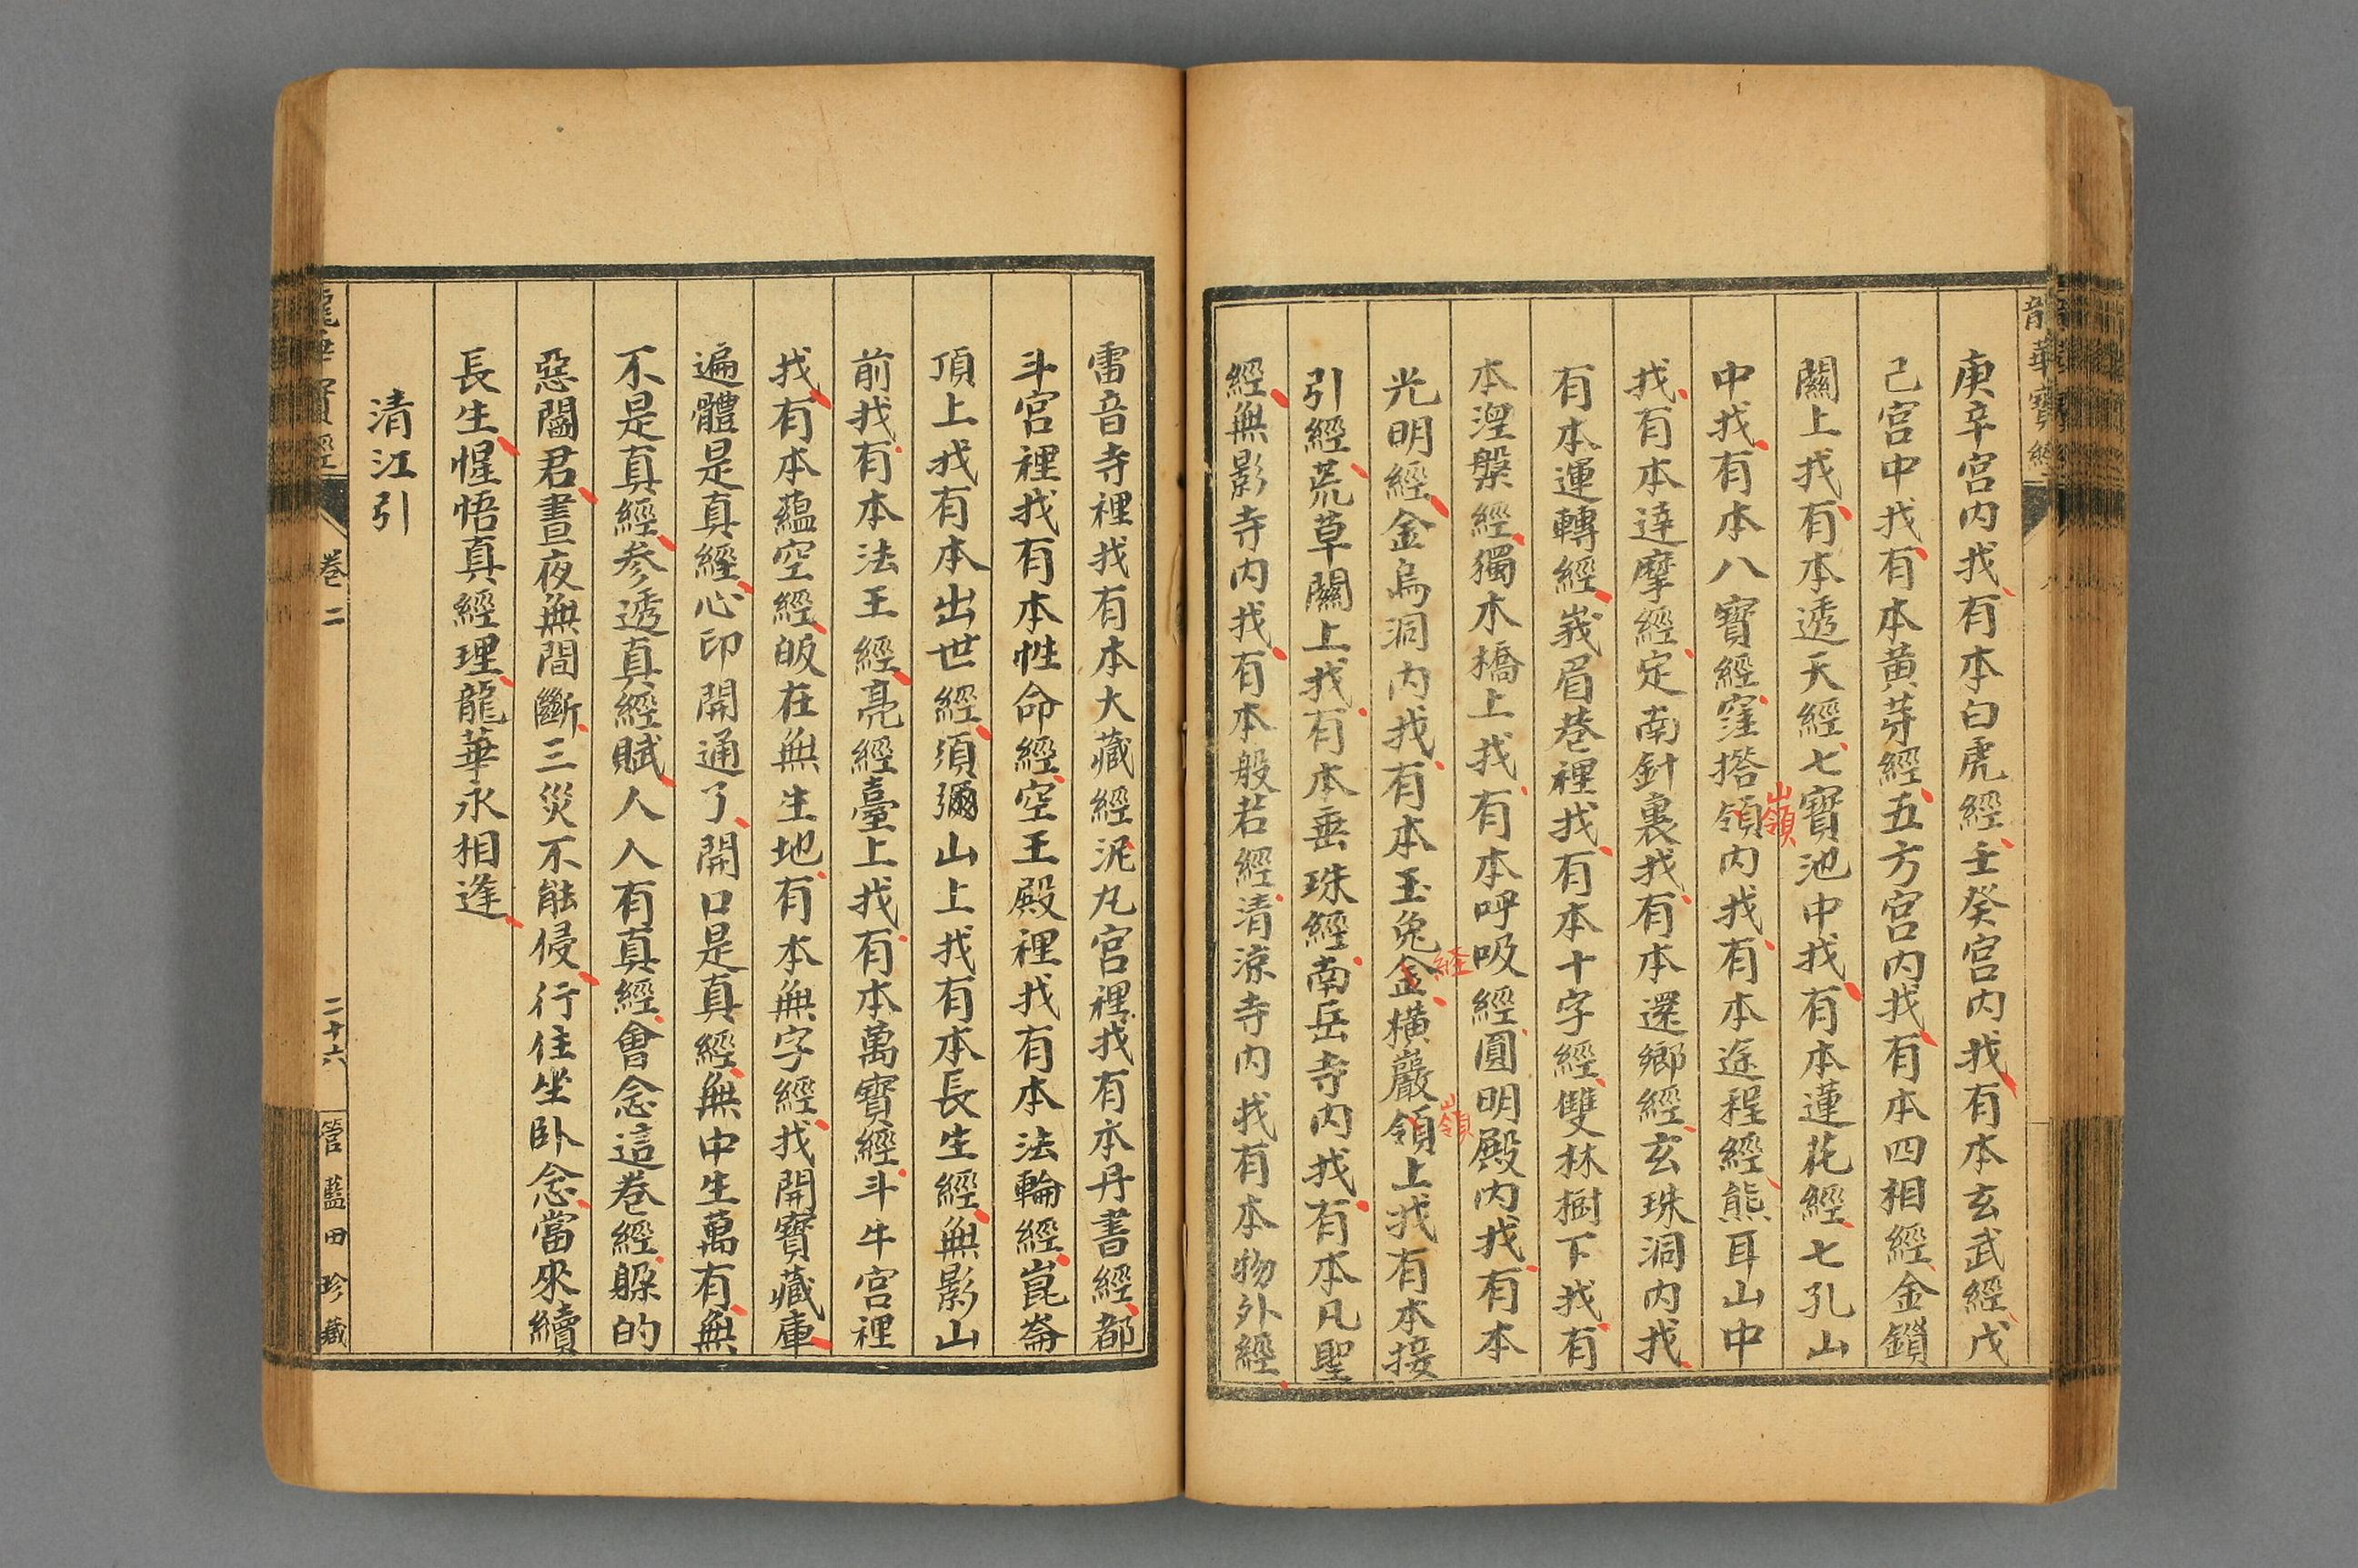 龍華寶經
庚辛宮內找有本白虎經壬癸宮內找有本玄武經戊
己宮中找有本黃芽經五方宮內找有本四相經金鎖
關上找有本透天經七寶池中找有本蓮花經七孔山
中找有本八寶經窪搭領內找有本途程經熊耳山中
嶺
找有本達摩經定南針裏找有本還鄉經玄珠洞內找
有本運轉經峩眉巷裡找有本十字經雙林樹下找有
本涅槃經獨木橋上找有本呼吸經圓明殿內找有本
光明經金烏洞內找有本玉兔金橫巖領上找有本接
經
嶺
引經荒草關上找有本垂珠經南岳寺內找有本凡聖
經無影寺內找有本般若經清涼寺內找有本物外經
雷音寺裡找有本大藏經泥丸宮裡找有本丹書經都
斗宮裡找有本性命經空王殿裡找有本法輪經崑崙
頂上找有本出世經須彌山上找有本長生經無影山
前找有本法王經亮經臺上找有本萬寶經斗牛宮裡
找有本蘊空經皈在無生地有本無字經找開寶藏庫
遍體是真經心印開通了開口是真經無中生萬有無
不是真經參透真經賦人人有真經會念這卷經躲的
惡閻君晝夜無間斷三災不能侵行住坐臥念當來續
長生惺悟真經理龍華永相逢
清江引
龍華寶經
卷二
二十六
管藍田珍藏